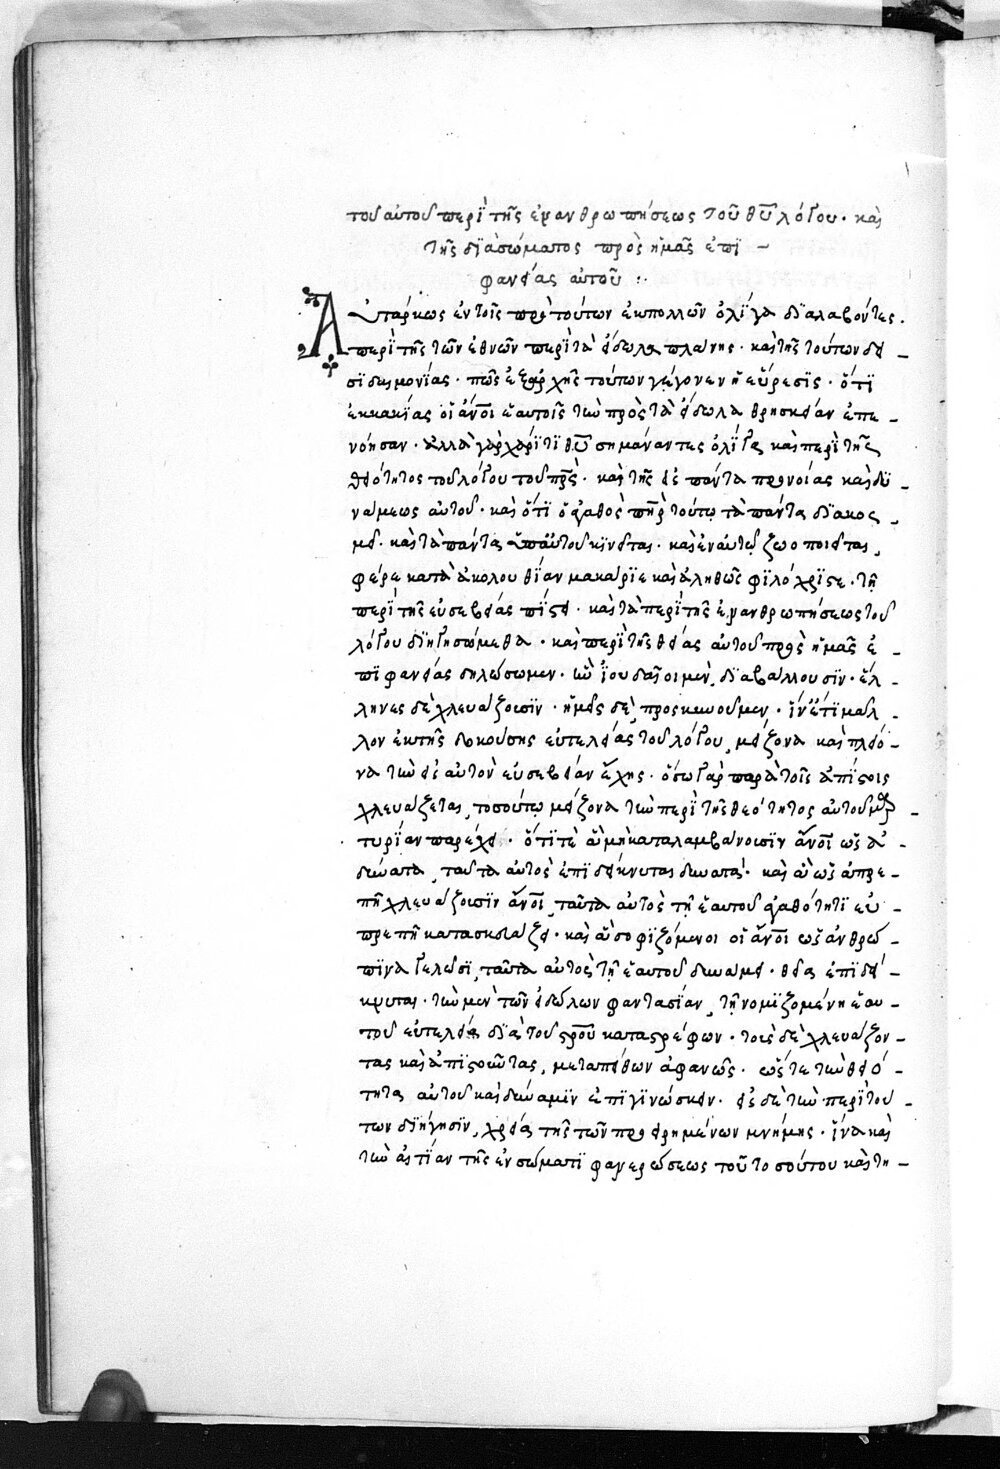 τοῦ αὐτοῦ περὶ τῆς ἐνανθρωπήσεως τοῦ θῦ λόγου· καὶ
τῆς διὰ σώματος πρὸς ἡμᾶς ἐπι-
φανείας αὐτοῦ :·
Αὐτάρκως ἐν τοῖς πρὸ τούτων ἐκ πολλῶν ὀλίγα διαλαβόντες.
περὶ τῆς τῶν ἐθνῶν περὶ τὰ εἴδωλα πλάνης· καὶ τῆς τούτων δει-
σιδαιμονίας· πῶς ἐξ ἀρχῆς τούτων γέγονεν ἡ εὕρεσις· ὅτι
ἐκ κακίας οἱ ἄνοι ἑαυτοῖς τὴν πρὸς τὰ εἴδωλα θρησκείαν ἐπε-
νόησαν· ἀλλὰ γὰρ χάριτι θῦ σημάναντες ὀλίγα καὶ περὶ τῆς
θειότητος τοῦ λόγου τοῦ πρς· καὶ τῆς εἰς πάντα προνοίας καὶ δυ-
νάμεως αὐτοῦ· καὶ ὅτι ὁ ἀγαθὸς πὴρ τούτῳ τὰ πάντα διακοσ-
μεῖ· καὶ τὰ πάντα ὑπ' αὐτοῦ κινεῖται· καὶ ἐν αὐτῷ ζωοποιεῖται,
φέρε κατὰ ἀκολουθίαν μακάριε καὶ ἀληθῶς φιλόχριστε· τῇ
περὶ τῆς εὐσεβείας πίστει· καὶ τὰ περὶ τῆς ἐνανθρωπήσεως τοῦ
λόγου διηγησώμεθα· καὶ περὶ τῆς θείας αὐτοῦ πρὸς ἡμᾶς ἐ-
πιφανείας δηλώσωμεν· ἣν ἰουδαῖοι μὲν, διαβάλλουσιν· ἕλ-
ληνες δὲ χλευάζουσιν· ἡμεῖς δὲ, προσκυνοῦμεν· ἵν' ἔτι μᾶλ-
λον ἐκ τῆς δοκούσης εὐτελείας τοῦ λόγου, μείζονα καὶ πλείο-
να τὴν εἰς αὐτὸν εὐσέβειαν ἔχῃς· ὅσῳ γὰρ παρὰ τοῖς ἀπίστοις
χλευάζεται, τοσούτῳ μείζονα τὴν περὶ τῆς θεότητος αὐτοῦ μαρ
τυρίαν παρέχει· ὅτι τε ἃ μὴ καταλαμβάνουσιν ἄνοι ὡς ἀ-
δύνατα, ταῦτα αὐτὸς ἐπιδείκνυται δυνατά· καὶ ἃ ὡς ἀπρε-
πῆ χλευάζουσιν ἄνοι, ταῦτα αὐτὸς τῇ ἑαυτοῦ ἀγαθότητι εὐ-
πρεπῆ κατασκευάζει· καὶ ἃ σοφιζόμενοι οἱ ἄνοι ὡς ἀνθρώ-
πινα γελῶσι, ταῦτα αὐτὸς τῇ ἑαυτοῦ δυνάμει· θεῖα ἐπιδεί-
κνυται· τὴν μὲν τῶν εἰδώλων φαντασίαν, τῇ νομιζομένῃ ἑαυ-
τοῦ εὐτελείᾳ διὰ τοῦ στροῦ καταστρέφων· τοὺς δὲ χλευάζον-
τας καὶ ἀπιστοῦντας, μεταπείθων ἀφανῶς· ὥστε τὴν θειό-
τητα αὐτοῦ καὶ δύναμιν ἐπιγινώσκειν· εἰς δὲ τὴν περὶ τού
των διήγησιν, χρεία τῆς τῶν προειρημένων μνήμης· ἵνα καὶ
τὴν αἰτίαν τῆς ἐν σώματι φανερώσεως τοῦ τοσούτου καὶ τη-